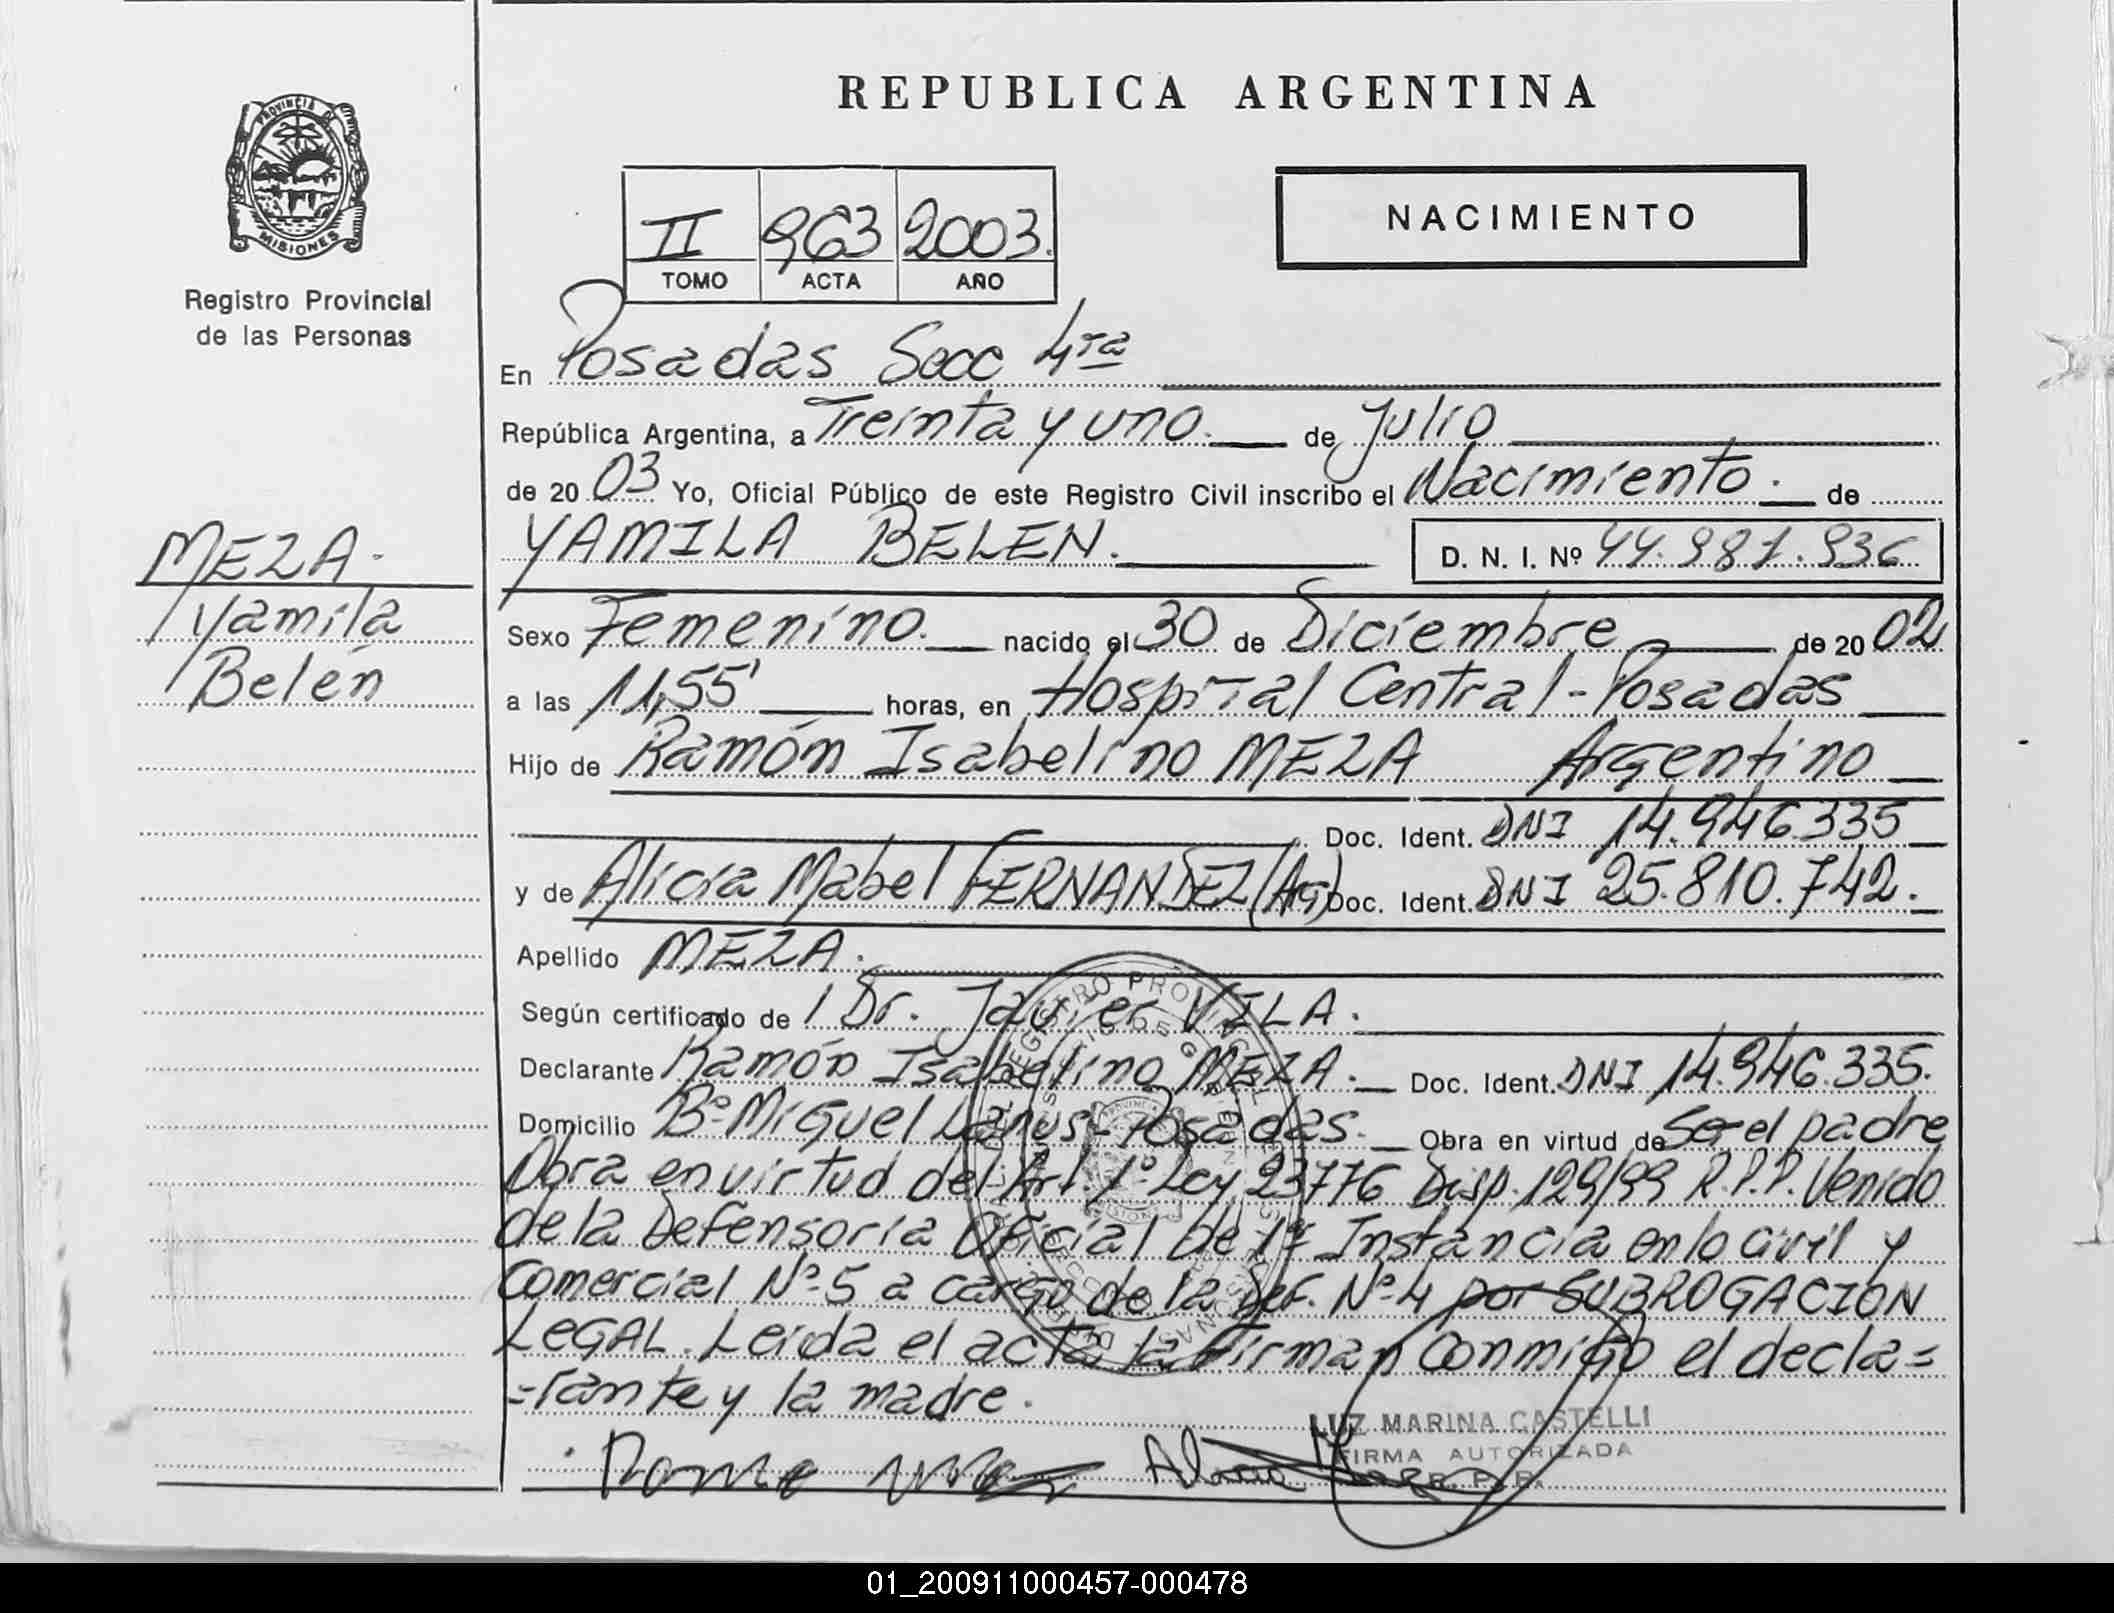 REPUBLICA ARGENTINA
PROVINCIA DE
MISIONES
Registro Provincial
de las Personas
NACIMIENTO
II 963 2003.
TOMO ACTA AÑO
En Posadas Secc 4ta
República Argentina, a Treinta y uno. de Julio
de 2003 Yo, Oficial Público de este Registro Civil inscribo el Nacimiento. de
YAMILA BELEN. D. N. I. Nº 44.987.936
MEZA.
Yamila
Belén
Sexo Femenino. nacido el 30 de Diciembre de 2002
a las 11,55' horas, en Hospital Central - Posadas
Hijo de Ramón Isabelino MEZA Argentino
Doc. Ident. DNI 14.946.335
y de Alicia Mabel FERNANDEZ (Arg) Doc. Ident. DNI 25.810.742.
Apellido MEZA.
Según certificado de / Dr. Javier VILA.
Declarante Ramón Isabelino MEZA. Doc. Ident. DNI 14.946.335.
Domicilio Bº Miguel Lanus - Posadas. Obra en virtud de Ser el padre
Obra en virtud del Art. 1º Ley 23776 Disp. 129/99 R.P.P. Venido
de la Defensoría Oficial De 1ª Instancia en lo civil y
Comercial Nº 5 a cargo de la Def. Nº 4 por SUBROGACION
LEGAL. Leída el acta la firman conmigo el decla=
=rante y la madre.
LUZ MARINA CASTELLI
FIRMA AUTORIZADA
R. P. P.
01_200911000457-000478